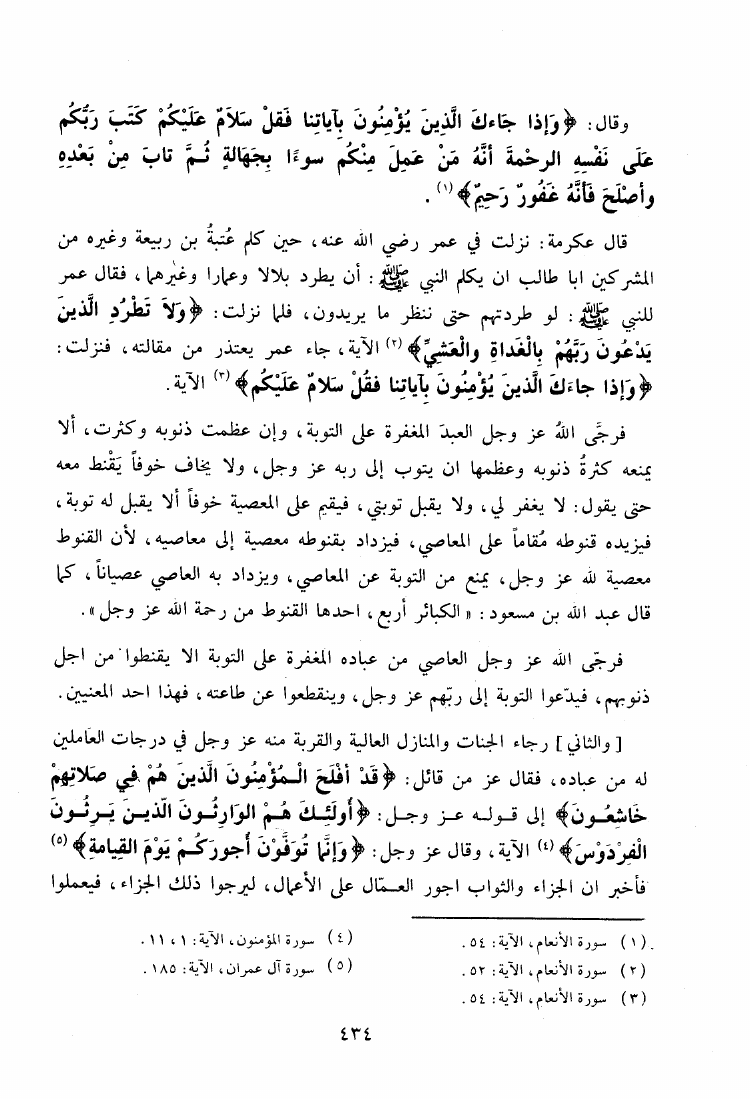 وقال: ﴿وَإذا جَاءكَ الَّذينَ يُؤْمِنُونَ بِآياتِنا فَقلْ سَلاَمٌ عَلَيْكُمْ كَتَبَ رَبُّكُم
عَلَى نَفْسِهِ الرحْمةَ أنَّهُ مَنْ عَمِلَ مِنْكُم سوءًا بِجَهَالةٍ ثُمَّ تابَ مِنْ بَعْدِهِ
وأصْلَحَ فَأنَّهُ غَفُورٌ رَحِيمٌ﴾(١).
قال عكرمة: نزلت في عمر رضي الله عنه، حين كلم عُتبةُ بن ربيعة وغيره من
المشركين ابا طالب ان يكلم النبي ﷺ: أن يطرد بلالا وعمارا وغيرهما، فقال عمر
للنبي ﷺ: لو طردتهم حتى ننظر ما يريدون، فلما نزلت: ﴿وَلاَ تَطْرُدِ الَّذينَ
يَدْعُونَ رَبَّهُمْ بِالْغَداةِ والْعَشِيِّ﴾(٢) الآية، جاء عمر يعتذر من مقالته، فنزلت:
﴿وَإذا جاءَكَ الَّذينَ يُؤْمِنُونَ بِآياتِنا فقُلْ سَلامٌ عَلَيْكُم﴾(٣) الآية.
فرجَّى اللهُ عز وجل العبدَ المغفرة على التوبة، وإن عظمت ذنوبه وكثرت، ألا
يمنعه كثرةُ ذنوبه وعظمها ان يتوب إلى ربه عز وجل، ولا يخاف خوفاً يَقْنط معه
حتى يقول: لا يغفر لي، ولا يقبل توبتي، فيقيم على المعصية خوفاً ألا يقبل له توبة،
فيزيده قنوطه مُقاماً على المعاصي، فيزداد بقنوطه معصية إلى معاصيه، لأن القنوط
معصية لله عز وجل، يمنع من التوبة عن المعاصي، ويزداد به العاصي عصياناً، كما
قال عبد الله بن مسعود: «الكبائر أربع، احدها القنوط من رحمة الله عز وجل».
فرجّى الله عز وجل العاصي من عباده المغفرة على التوبة الا يقنطوا من اجل
ذنوبهم، فيدّعوا التوبة إلى ربّهم عز وجل، وينقطعوا عن طاعته، فهذا احد المعنيين.
[والثاني] رجاء الجنات والمنازل العالية والقربة منه عز وجل في درجات العاملين
له من عباده، فقال عز من قائل: ﴿قَدْ أفْلَحَ الْمُؤْمِنُونَ الَّذينَ هُمْ فِي صَلاتِهِمْ
خَاشِعُونَ﴾ إلى قوله عز وجل: ﴿أُولَئِكَ هُمْ الوَارِثُونَ الّذينَ يَرِثُونَ
الْفِرْدَوْسَ﴾(٤) الآية، وقال عز وجل: ﴿وَإنَّمَا تُوَفَّوْنَ أُجورَكُمْ يَوْمَ القِيامةِ﴾(٥)
فأخبر ان الجزاء والثواب اجور العمّال على الأعمال، ليرجوا ذلك الجزاء، فيعملوا
(١) سورة الأنعام، الآية: ٥٤.
(٢) سورة الأنعام، الآية: ٥٢.
(٣) سورة الأنعام، الآية: ٥٤.
(٤) سورة المؤمنون، الآية: ١، ١١.
(٥) سورة آل عمران، الآية: ١٨٥.
٤٣٤